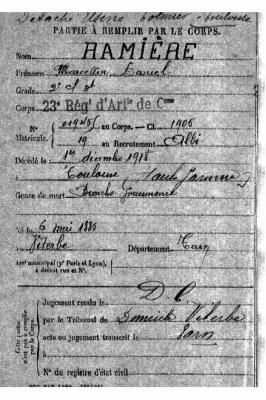 Détaché Usine
PARTIE À REMPLIR PAR LE CORPS.
Nom RAMIÈRE
Prénoms Daniel
Grade 2e
Corps 23e Régt d'Artie de Cgne
N° 01925 au Corps. — Cl. 1906
Matricule. 19 au Recrutement Albi
Décédé le 1er décembre 1918
à Toulouse (Haute Garonne)
Genre de mort Broncho pneumonie
Né le 6 mai 1886
à Viterbe Département Tarn
Arrt municipal (pr Paris et Lyon),
à défaut rue et N°.
Cette partie
n'est pas à remplir
par le Corps.
Jugement rendu le D. C
par le Tribunal de Domicile Viterbe
acte ou jugement transcrit le Tarn
à
N° du registre d'état civil